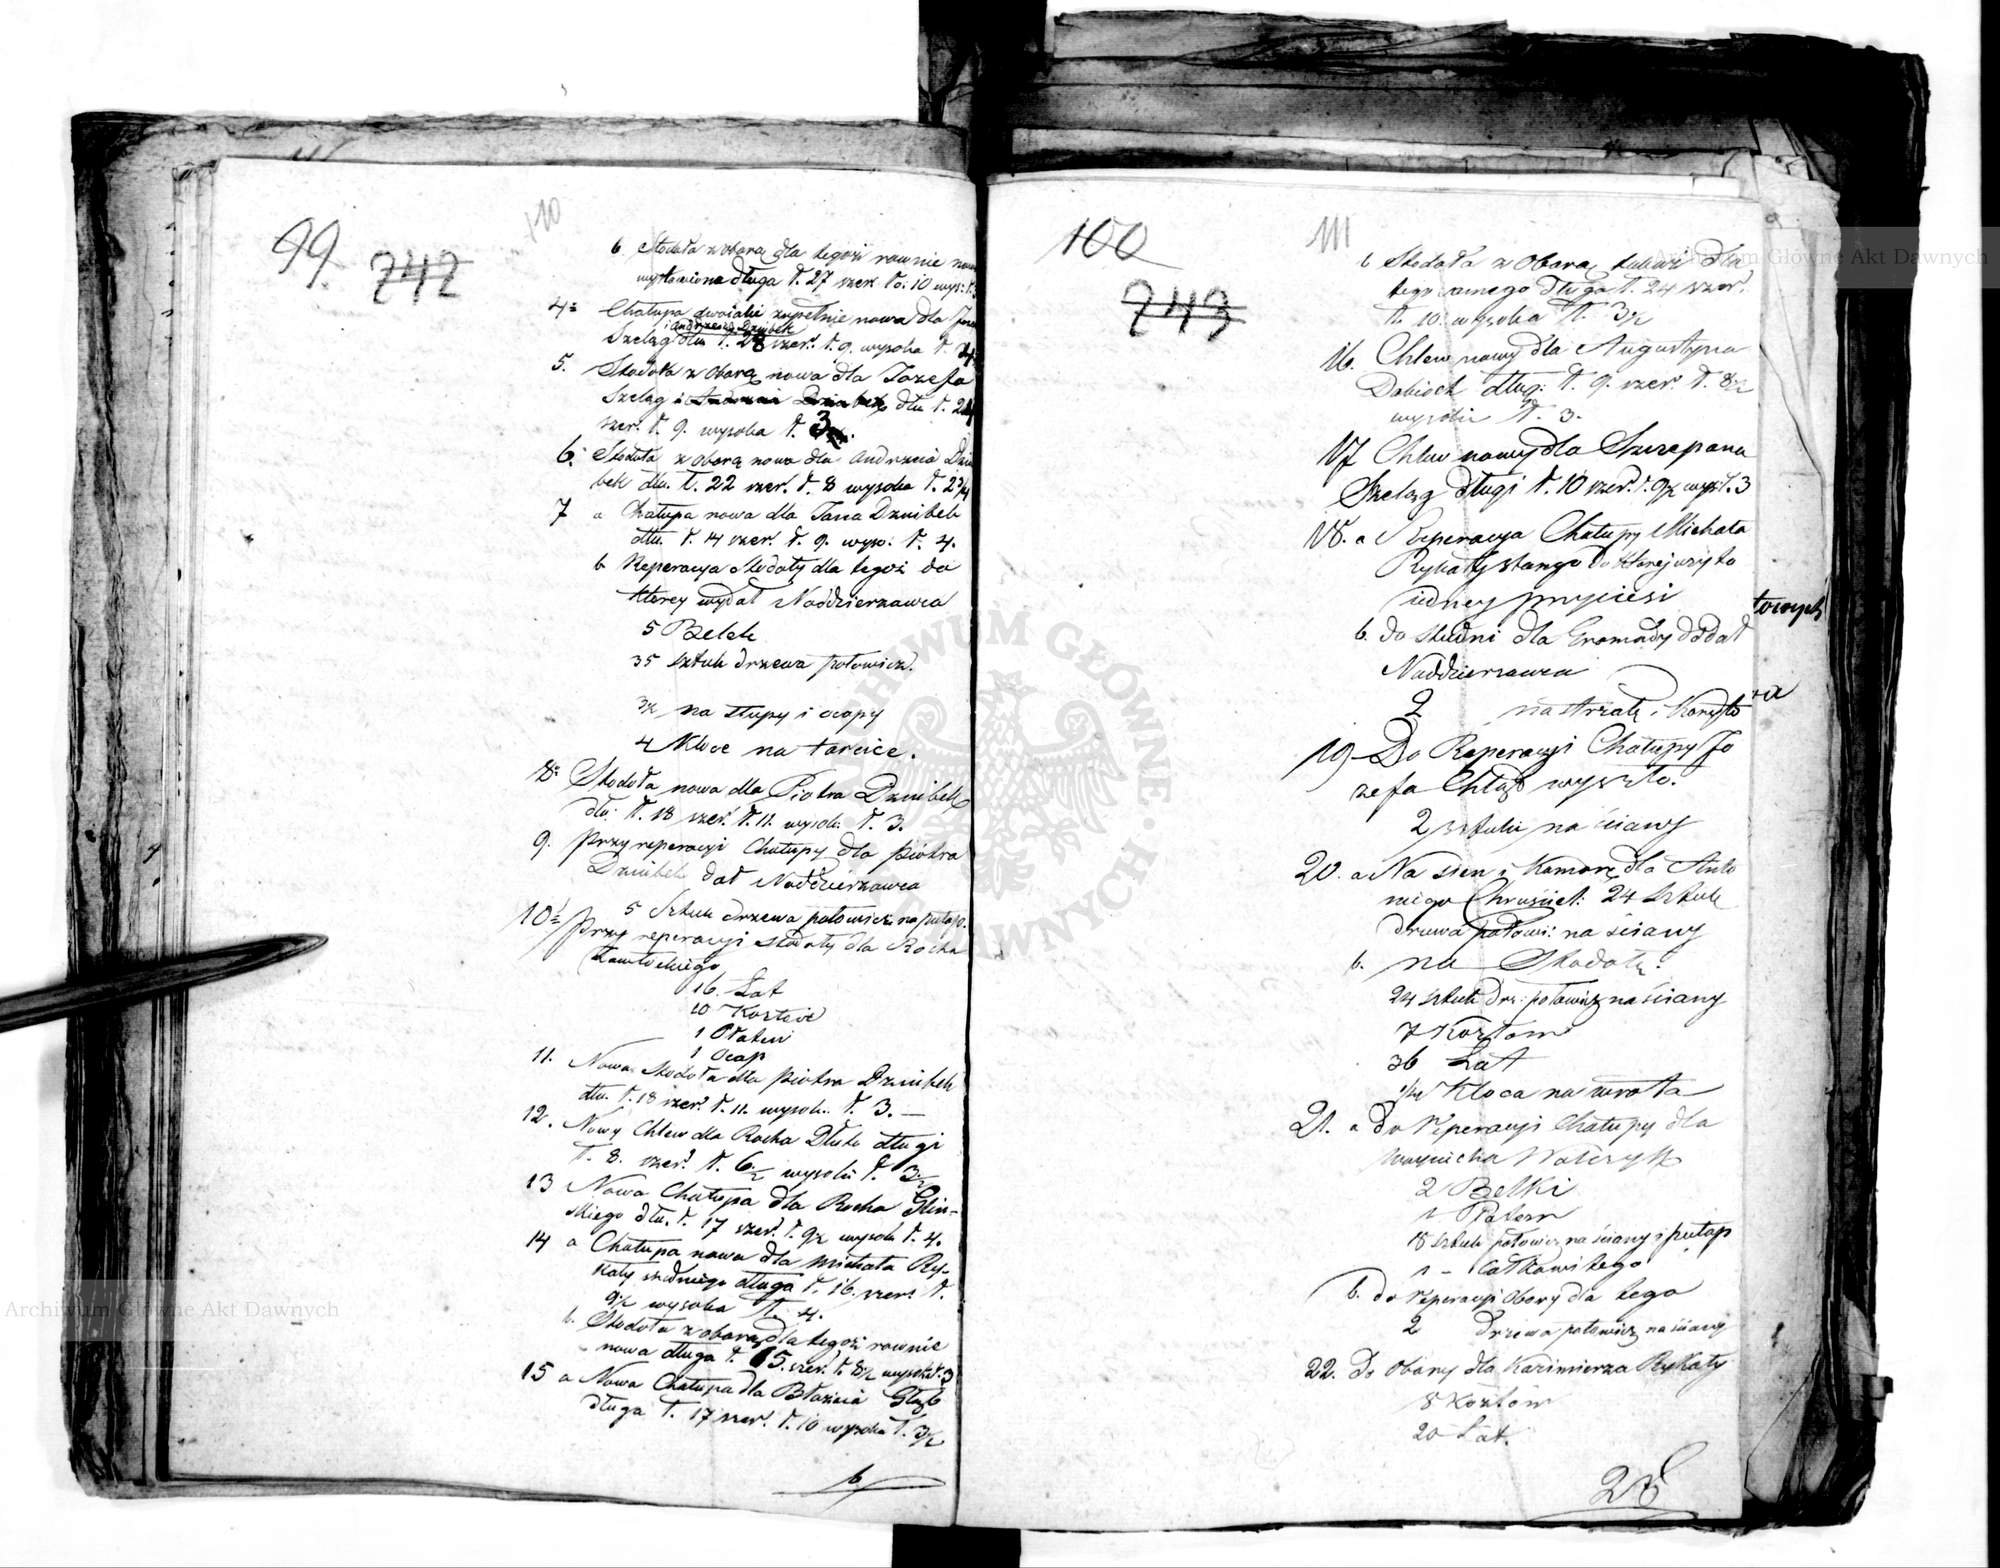 99.
742
110
b Stodoła z oborą dla tegoż rownie nowo
wystawiona długa ł. 27 szer ło: 10 wys: ł.
4= Chałupa dwoiaki zupełnie nowa dla Jana
i Andrzeia Dziubek
Szeląg dłu ł. 28 szer. ł. 9. wysoka ł. 4
5. Stodoła z oborą nowa dla Jozefa
Szeląg i Andrzeia Dziubek dłu ł. 24
szer. ł. 9. wysoka ł. 3½.
6. Stodoła z oborą nowa dla Andrzeia Dziu
bek dłu. ł. 22 szer. ł. 8 wysoka ł. 2¾
7 a Chałupa nowa dla Jana Dziubek
dłu. ł. 14 szer. ł. 9. wyso: ł. 4.
b Reperacya Stodoły dla tegoż do
ktorey wydał Naddzierzawca
5 Belek
35 sztuk drzewa połowicz.
3½ na słupy i ocapy
4 Kloce na tarcice.
8= Stodoła nowa dla Piotra Dziubek
dłu: ł. 18 szer. ł. 11. wysok. ł. 3.
9. Przy reperacyi Chałupy dla Piotra
Dziubek dał Naddzierzawca
5 Sztuk drzewa połowicz: na pułap.
10= Przy reperacyi Stodoły dla Rocha
Pawłockiego
16. Łat
10 Kozłow
1 Płatew
1 Ocap
11. Nowa Stodoła dla Piotra Dziubek
dłu. ł. 18 szer. ł. 11. wysok. ł. 3. —
12. Nowy Chlew dla Rocha Dłuk długi
ł. 8. szer. ł. 6½ wysoki ł. 3½
13 Nowa Chałupa dla Rocha Glin-
skiego dłu. ł. 17 szer. ł. 9½ wysok ł. 4.
14 a Chałupa nowa dla Michała Ry-
kały sredniego długa ł. 16. szer. ł.
9½ wysoka ł. 4.
b. Stodoła z oborą dla tegoż rownie
nowa długa ł. 15. szer. ł. 8½ wysoka ł. 3
15 a Nowa Chałupa dla Błażeia Głąb
długa ł. 17 szer. ł. 10 wysoka ł. 3½
b
100
743
111
b Stodoła z Oborą tudzież dla
tego samego długa ł. 24 szer.
ł. 10. wysoka ł. 3½
16. Chlew nowy dla Augustyna
Dobioch dług: ł. 9. szer. ł. 8½
wysoki ł. 3.
17 Chlew nowy dla Szczepana
Szeląg długi ł. 10 szer. ł. 9½ wys: ł. 3
18. a Reperacya Chałupy Michała
Rykały starego do ktorej uzyto
iedney przyciesi
b. do studni dla Gromady dodał
Naddzierzawca
2 na strzałę i Koryto
19 Do Reperacyi Chałupy Jo
zefa Chłąd wyszło.
2 sztuki na ściany
20. a Na sien i Komorę dla Anto
niego Chruściel: 24 Sztuk
drzewa połowi: na ściany
b. na Stodołę.
24 sztuk drz: połowicz na ściany
7 Kozłow
36 Łat
½ Kloca na wrota
21. a do reperacyi Chałupy dla
Woyciecha Walczyk
2 Belki
1 Płatew
18 sztuk połowicz na ściany i pułap
1 — Całkowitego
b. do reperacyi Obory dla tego
2 Drzewa połowicz na ściany
22. Do Obory dla Kazimierza Rykały
8 Kozłów
20 Łat.
28
Archiwum Główne Akt Dawnych
ARCHIWUM GŁÓWNE AKT DAWNYCH
Archiwum Główne Akt Dawnych